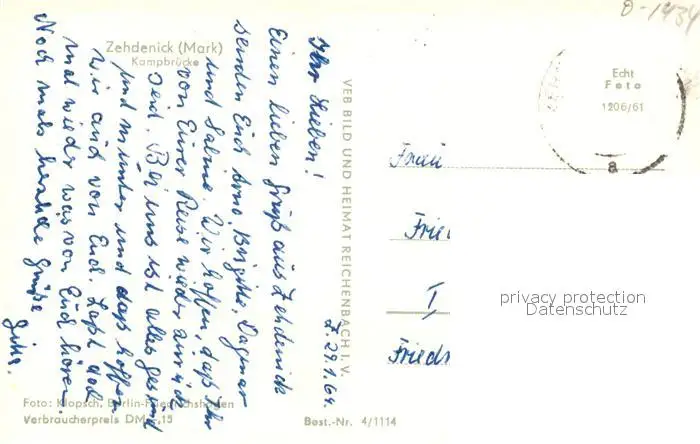 Zehdenick (Mark)
Kampbrücke
Ihr Lieben!
Einen lieben Gruß aus Zehdenick
senden Euch Arno, Brigitte, Dagmar
und Sabine. Wir hoffen, daß Ihr
von Eurer Reise wieder zurück
seid. Bei uns ist alles gesund
und munter und daß hoffen
wir auch von Euch. Laßt doch
mal wieder was von Euch hören.
Noch mals herzliche Grüße
Z. 29.1.64.
VEB BILD UND HEIMAT REICHENBACH I. V.
Foto: Klopsch, Berlin-Friedrichshagen
Verbraucherpreis DM -,15
Best.-Nr. 4/1114
0-1434
Echt
Foto
1206/61
a
Frau
Fried
I
Friedr
privacy protection
Datenschutz